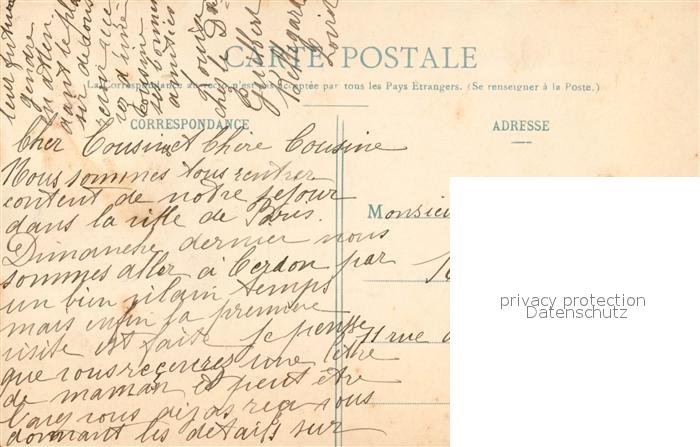 CARTE POSTALE
La Correspondance au recto n'est pas acceptée par tous les Pays Étrangers. (Se renseigner à la Poste.)
CORRESPONDANCE
ADRESSE
Cher Cousin et Chère Cousine
Nous sommes tous rentrer
content de notre séjour
dans la ville de Paris.
Dimanche dernier nous
sommes aller à Cerdon par
un bien vilain temps
mais enfin la première
visite est faite je pense
que vous recevrez une lettre
de maman et peut être
l'avez vous déjas reçu vous
donnant les détails sur
leur future
gendre
en atten
dant le plai
sir de vous
revoir
Cousine
bonnes
amitiés
Louise
chez le
Louis
Monsieu
11 rue
privacy protection
Datenschutz